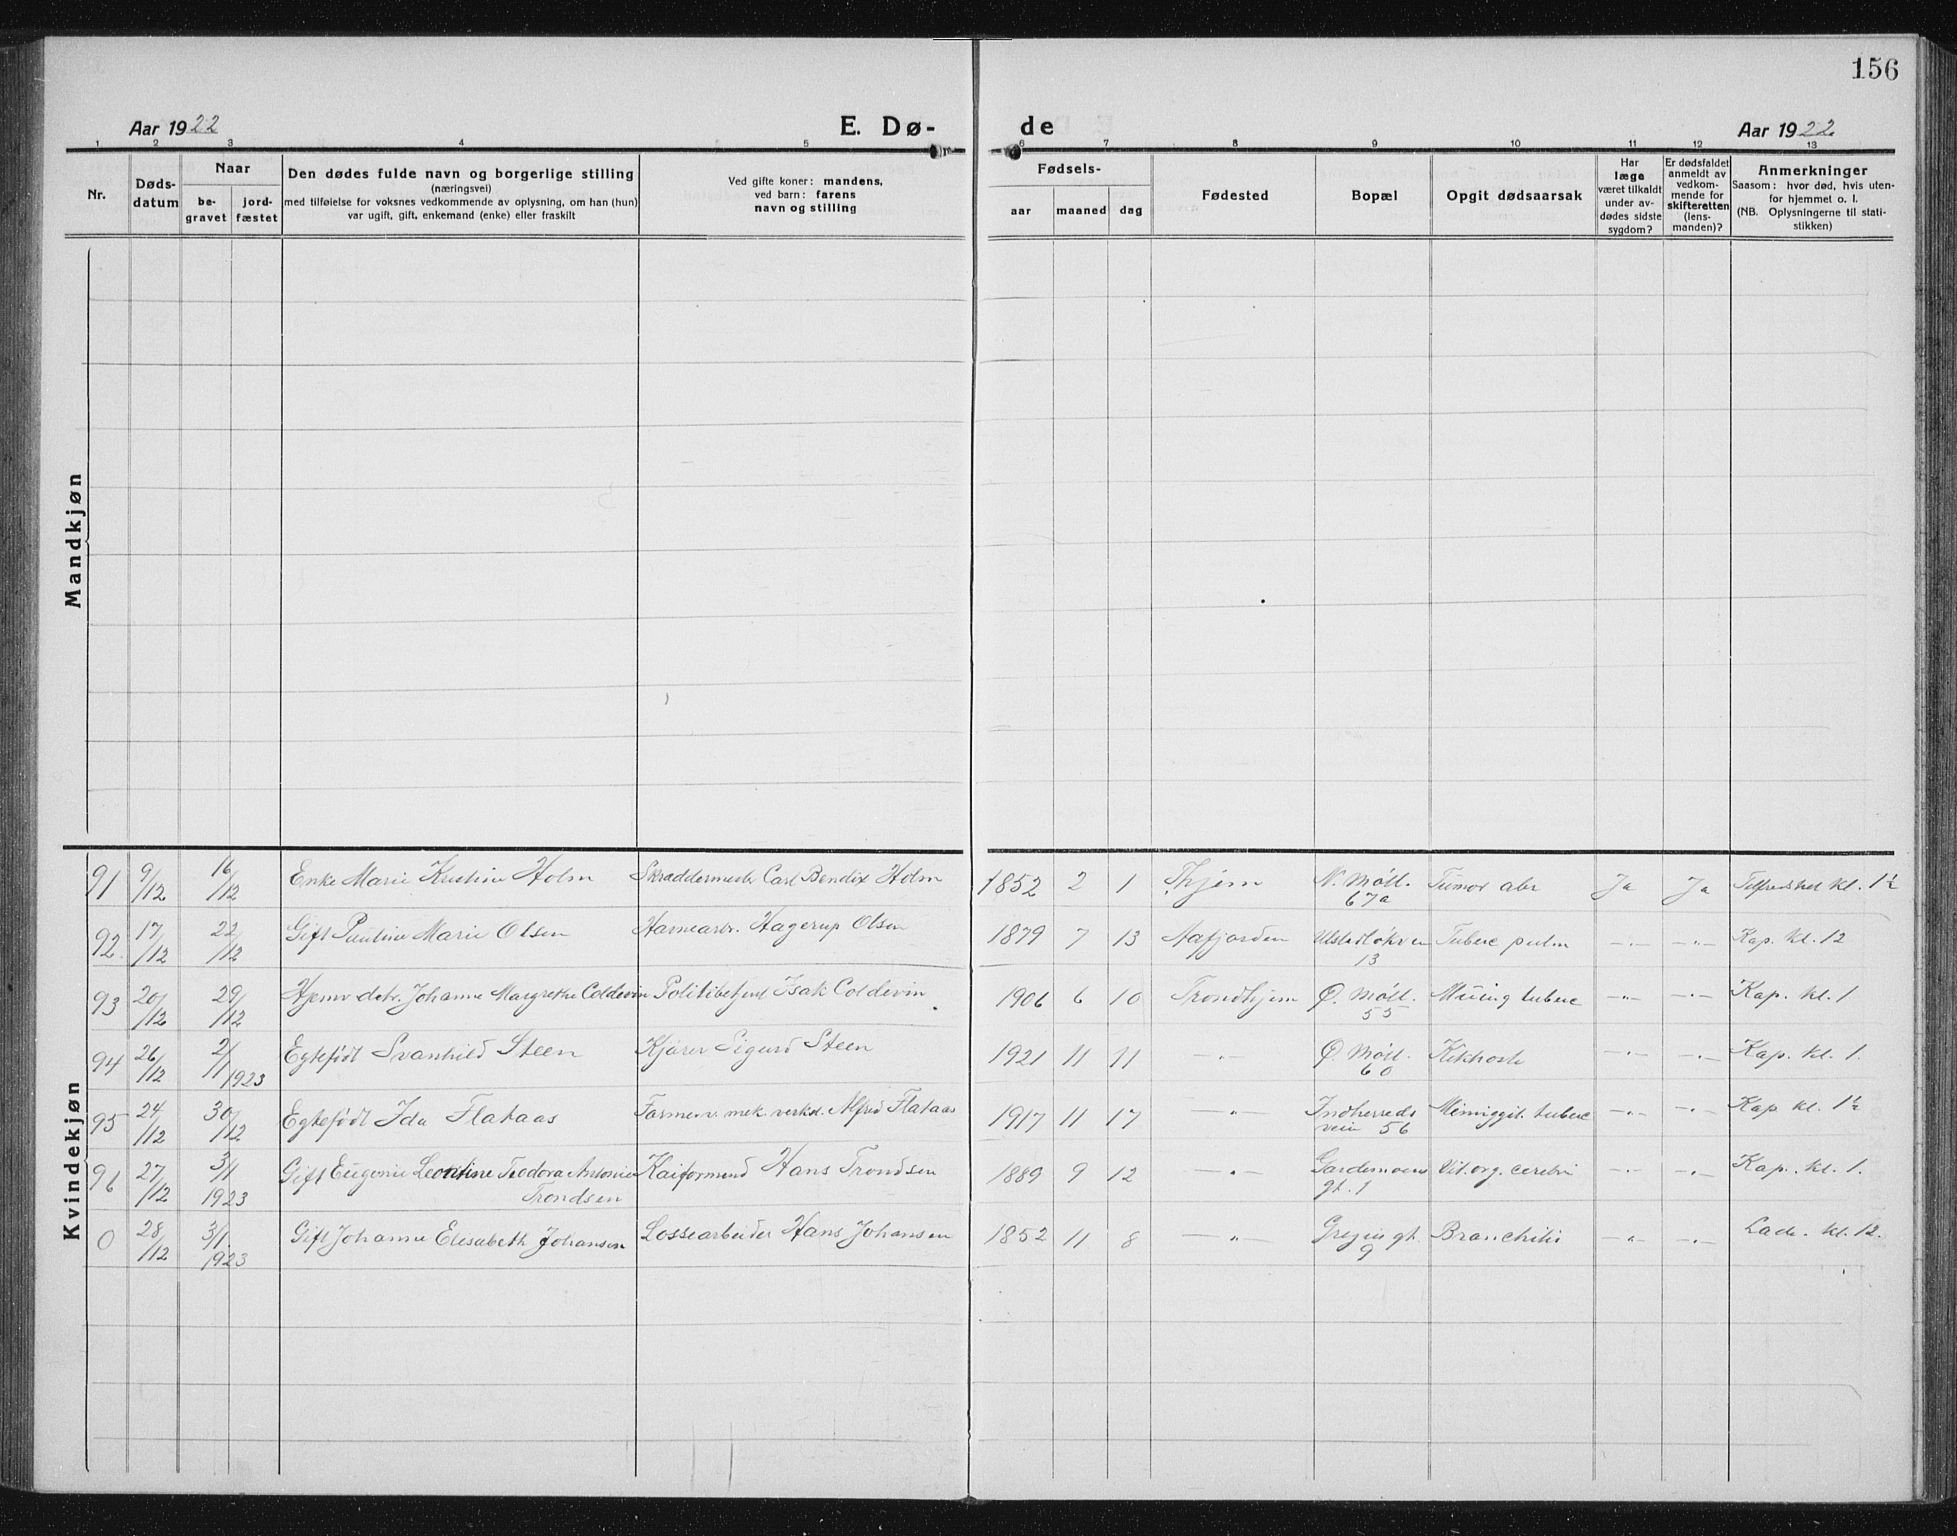 156
Aar 1922
E. Dø-
de
Aar 1922
1 2 3 4 5 6 7 8 9 10 11 12 13
Nr.
Døds-
datum
Naar
be-
gravet
jord-
fæstet
Den dødes fulde navn og borgerlige stilling
(næringsvei)
med tilføielse for voksnes vedkommende av oplysning, om han (hun)
var ugift, gift, enkemand (enke) eller fraskilt
Ved gifte koner: mandens,
ved barn: farens
navn og stilling
Fødsels-
aar
maaned
dag
Fødested
Bopæl
Opgit dødsaarsak
Har
læge
været tilkaldt
under av-
dødes sidste
sygdom?
Er dødsfaldet
anmeldt av
vedkom-
mende for
skifteretten
(lens-
manden)?
Anmerkninger
Saasom: hvor død, hvis uten-
for hjemmet o. l.
(NB. Oplysningerne til stati-
stikken)
Mandkjøn
Kvindekjøn
91 9/12 16/12 Enke Marie Kristine Holm Skraddermester Carl Bendix Holm 1852 2 1 Thjem N. Möll. 67a Tumor abr Ja Ja Kl. 1½
92. 17/12 22/12 Gift Pauline Marie Olsen Havnearb. Hagerup Olsen 1879 7 13 Aafjorden 13 Tuberc pulm -"- -"- Kap. kl. 12
93 20/12 29/12 Hjemv. datr. Johanne Margrethe Coldevin Politibetjent Isak Coldevin 1906 6 10 Trondhjem Ø. Möll. 55 tuberc -"- -"- Kap. kl. 1
94 26/12 2/1 1923 Egtefödt Svanhild Steen Kjörer Sigurd Steen 1921 11 11 -"- Ø. Möll. 60 Kikhoste -"- -"- Kap. kl. 1.
95 24/12 30/12 Egtefödt Ida Flataas Formerv. mek. verksd. Alfred Flataas 1917 11 17 -"- Indherreds veien 56 tuberc -"- -"- Kap kl. 1½
96 27/12 3/1 1923 Gift Eugenie Leontine Teodora Antonie Trondsen Kaiformand Hans Trondsen 1889 9 12 -"- Gardemoens gt. 1 Vit. org. cerebri -"- -"- Kap. kl. 1.
0 28/12 3/1. 1923 Gift Johanne Elisabeth Johansen Lossearbeider Hans Johansen 1852 11 8 -"- gt. 9 -"- -"- Lade. kl. 12.